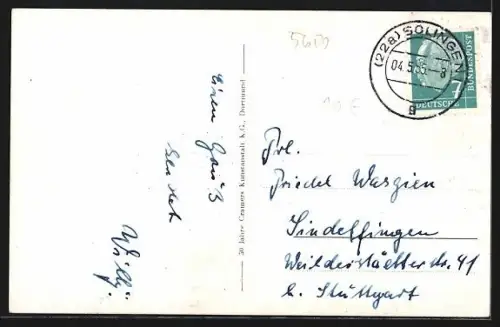 5600
(22a) SOLINGEN 1
04.5.55-8
g
7
DEUTSCHE BUNDESPOST
10 €
Einen Gruß
sendet
Willy.
50 Jahre Cramers Kunstanstalt K.G., Dortmund
Frl.
Friedel Waszien
Sindelfingen
Weilderstädterstr. 41
b. Stuttgart